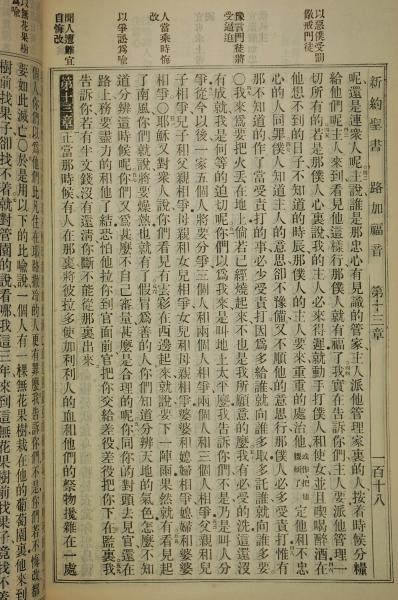 新約聖書 路加福音 第十三章 一百十八
以惡僕受罰
儆戒門徒
豫言門徒將
受逼迫
人當乘時悔
改
以爭訟爲喻
聞人遭難宜
自悔改
以無花果樹
爲喻
呢還是連衆人呢主說誰是那忠心有見識的管家主人派他管理家裏的人按着時候分糧
給他們呢主人來到看見他這樣行那僕人就有福了我實在告訴你們主人要派他管理一
切所有的若是那僕人心裏說我的主人必來得遲就動手打僕人和使女並且喫喝醉酒在
他想不到的日子不知道的時辰那僕人的主人要來重重的處治他或作把他腰斬了定他和不忠
心的人同罪僕人知道主人的意思卻不豫備又不順他的意思行那僕人必多受責打惟有
那不知道的作了當受責打的事必少受責打因爲多給誰就向誰多取多託誰就向誰多要
○我來爲要把火丟在地上倘若已經燒起來不也是我所願意的麼我有必受的洗這還沒
有成就我是何等的迫切呢你們以爲我來是叫地上太平麼我告訴你們不是乃是叫人分
爭從今以後一家五個人將要分爭三個人和兩個人相爭兩個人和三個人相爭父親和兒
子相爭兒子和父親相爭母親和女兒相爭女兒和母親相爭婆婆和媳婦相爭媳婦和婆婆
相爭○耶穌又對衆人說你們看見有雲彩在西邊起來就說要下一陣雨果然就有看見起
了南風你們就說將要燥熱也就有了假冒爲善的人你們知道分辨天地的氣色怎麼不知
道分辨這時候呢你們又爲甚麼不自己審量甚麼是合理的呢你同你的對頭去見官還在
路上務要盡力的和他了結恐怕他拉你到官面前官把你交給差役差役把你下在監裏我
告訴你若有半文錢沒有還清你斷不能從那裏出來
第十三章 正當那時候有人在那裏將彼拉多使加利利人的血和他們的祭物攙雜在一處
個人你們以爲他們比凡住在耶路撒冷的人更有罪麼我告訴你們不是你們若不悔改都
要如此滅亡○於是用以下的比喻說一個人有一棵無花果樹栽在他的葡萄園裏他來到
樹前找果子卻找不着就對管園的說看哪我這三年來到這無花果樹前找果子竟找不着